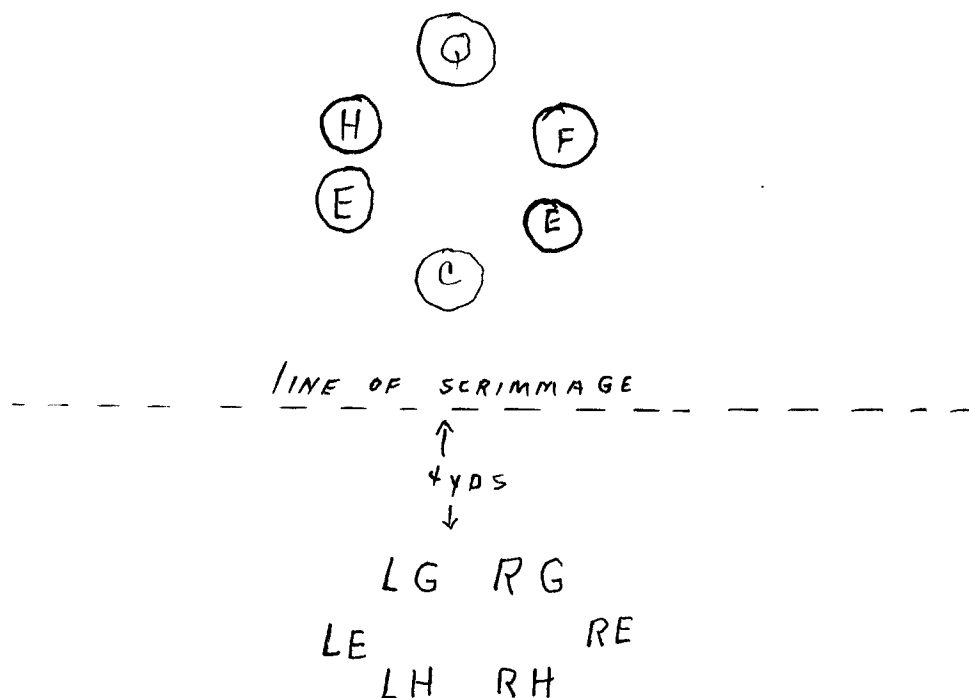 Q
H F
E E
C
LINE OF SCRIMMAGE
4 YDS
LG RG
LE RE
LH RH